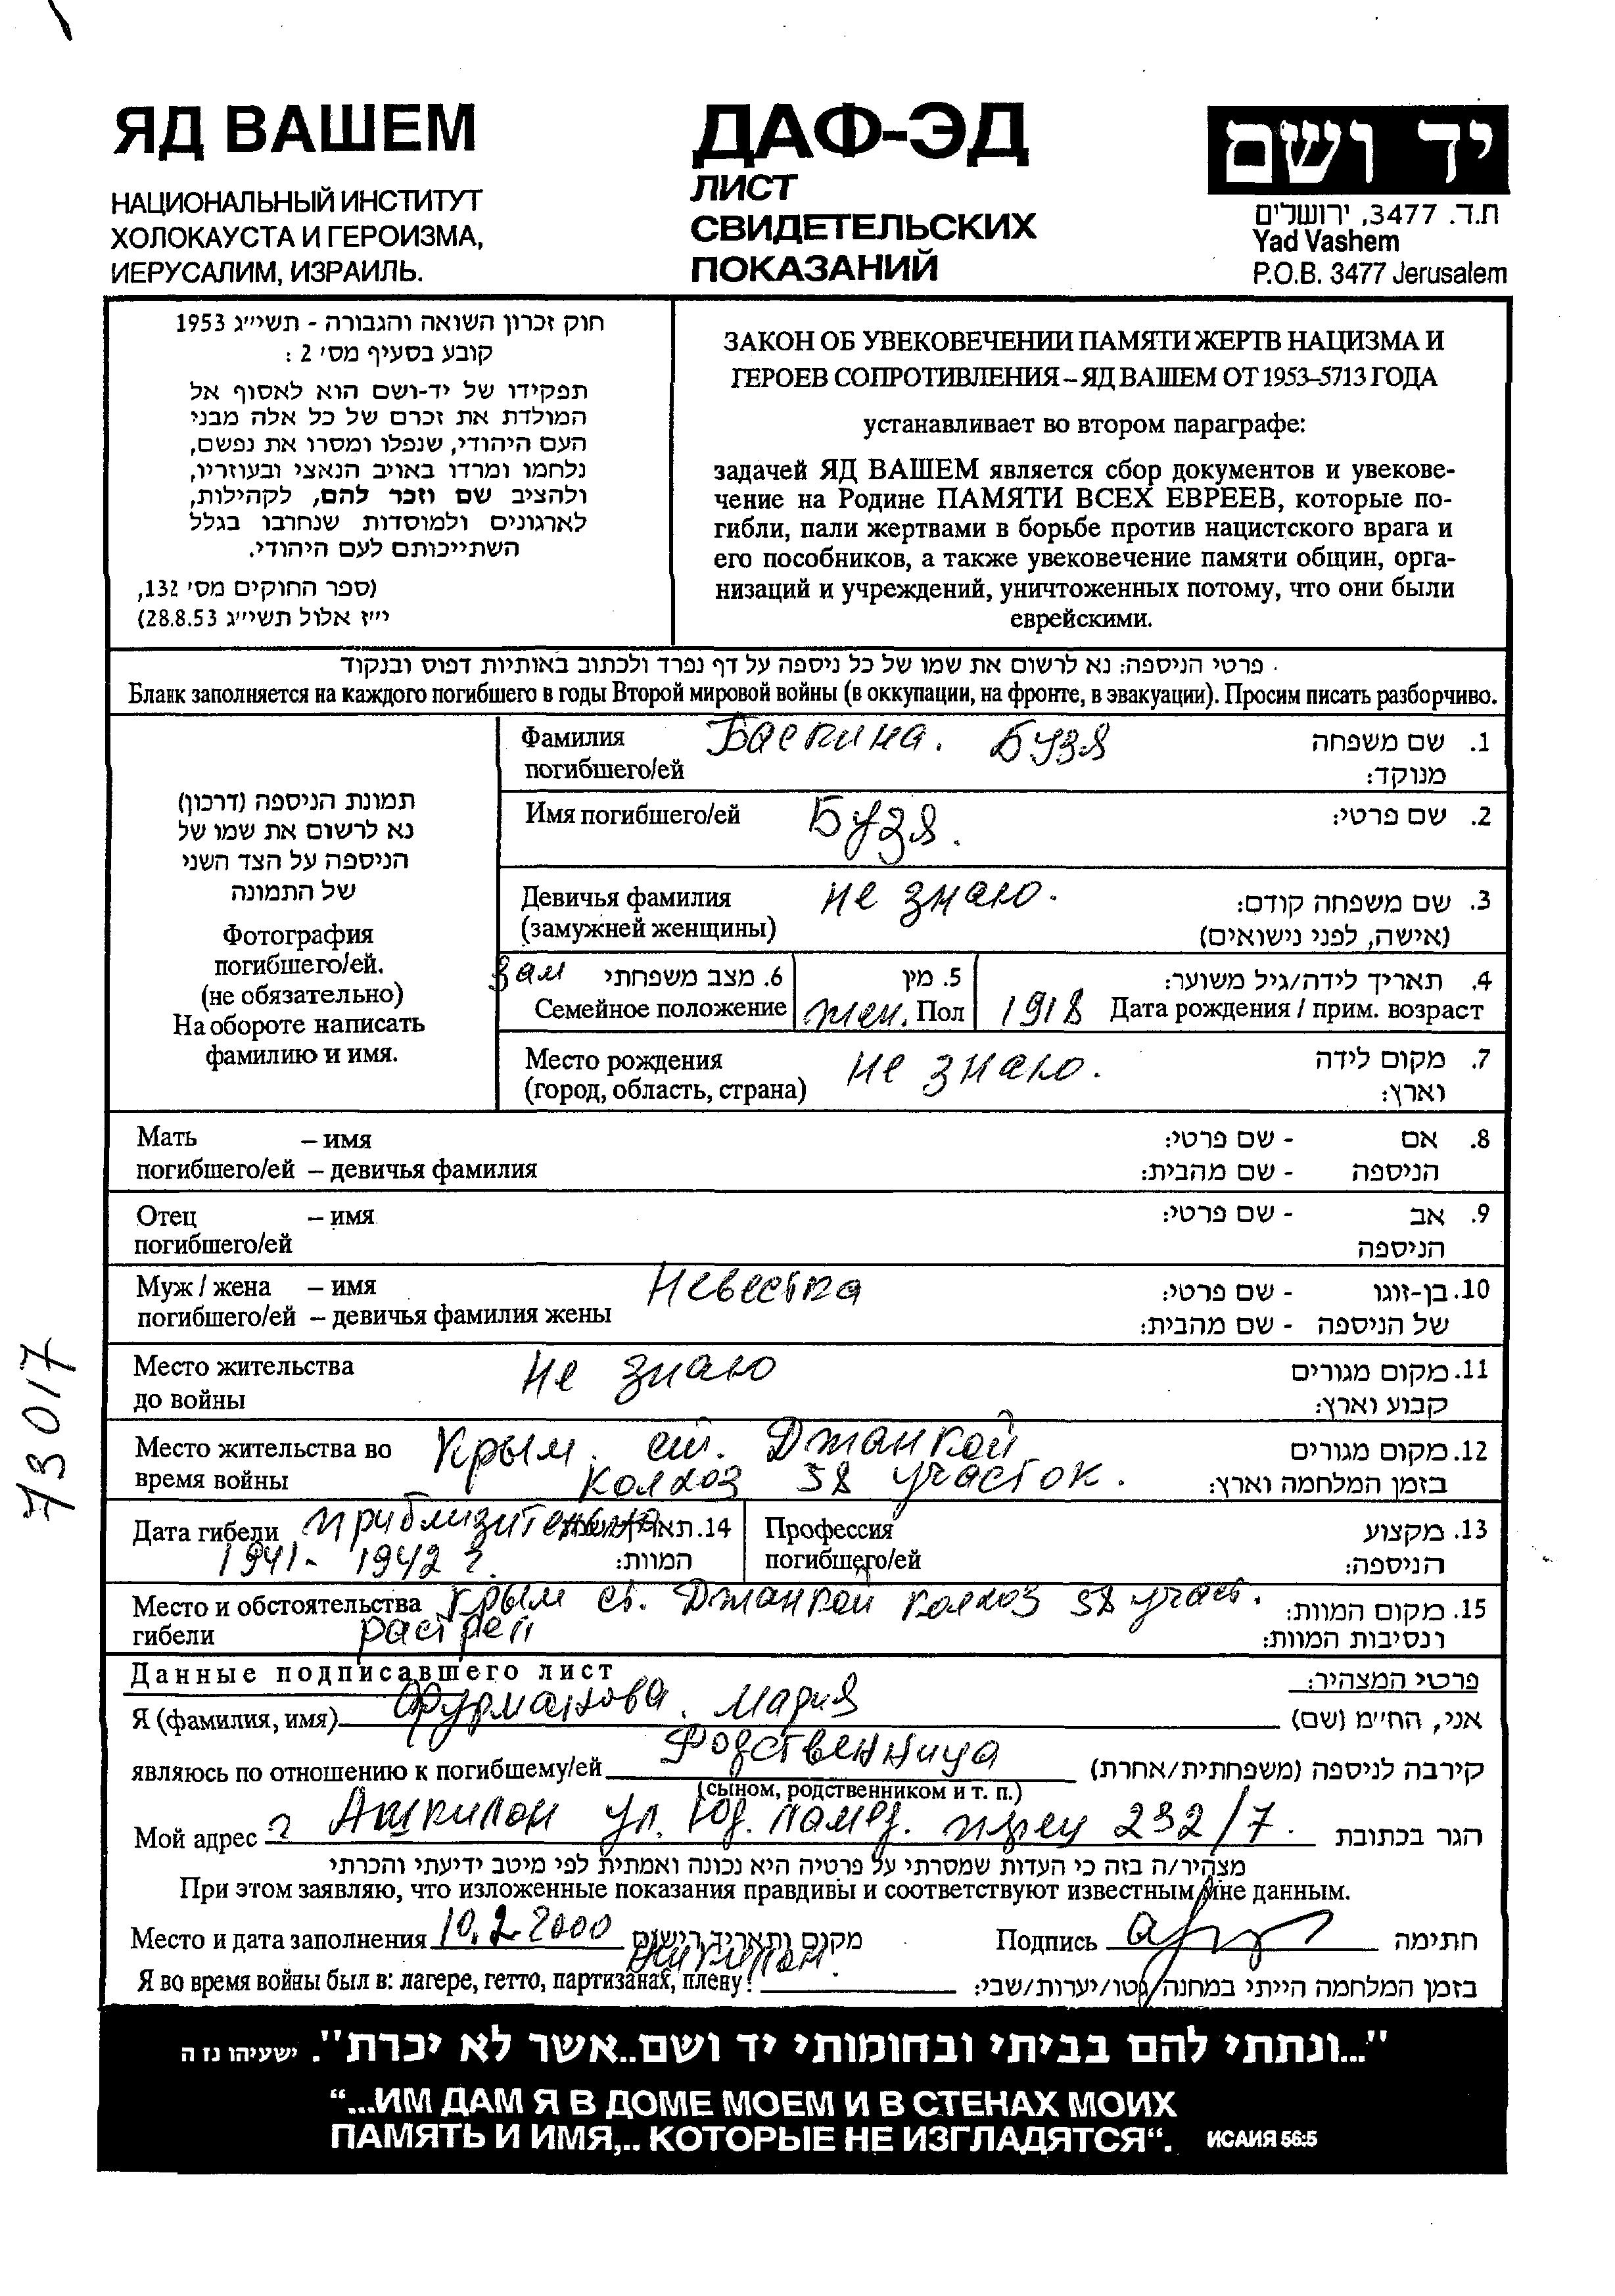 ЯД ВАШЕМ
НАЦИОНАЛЬНЫЙ ИНСТИТУТ
ХОЛОКАУСТА И ГЕРОИЗМА,
ИЕРУСАЛИМ, ИЗРАИЛЬ.
ДАФ-ЭД
ЛИСТ
СВИДЕТЕЛЬСКИХ
ПОКАЗАНИЙ
יד ושם
ת.ד. 3477, ירושלים
Yad Vashem
P.O.B. 3477 Jerusalem
חוק זכרון השואה והגבורה - תשי״ג 1953
קובע בסעיף מס׳ 2 :
תפקידו של יד-ושם הוא לאסוף אל
המולדת את זכרם של כל אלה מבני
העם היהודי, שנפלו ומסרו את נפשם,
נלחמו ומרדו באויב הנאצי ובעוזריו,
ולהציב שם וזכר להם, לקהילות,
לארגונים ולמוסדות שנחרבו בגלל
השתייכותם לעם היהודי.
(ספר החוקים מס׳ 132,
י״ז אלול תשי״ג 28.8.53)
ЗАКОН ОБ УВЕКОВЕЧЕНИИ ПАМЯТИ ЖЕРТВ НАЦИЗМА И
ГЕРОЕВ СОПРОТИВЛЕНИЯ – ЯД ВАШЕМ ОТ 1953–5713 ГОДА
устанавливает во втором параграфе:
задачей ЯД ВАШЕМ является сбор документов и увекове-
чение на Родине ПАМЯТИ ВСЕХ ЕВРЕЕВ, которые по-
гибли, пали жертвами в борьбе против нацистского врага и
его пособников, а также увековечение памяти общин, орга-
низаций и учреждений, уничтоженных потому, что они были
еврейскими.
פרטי הניספה: נא לרשום את שמו של כל ניספה על דף נפרד ולכתוב באותיות דפוס ובנקוד
Бланк заполняется на каждого погибшего в годы Второй мировой войны (в оккупации, на фронте, в эвакуации). Просим писать разборчиво.
תמונת הניספה (דרכון)
נא לרשום את שמו של
הניספה על הצד השני
של התמונה
Фотография
погибшего/ей.
(не обязательно)
На обороте написать
фамилию и имя.
Фамилия Баскина. Бузя 1. שם משפחה
погибшего/ей מנוקד:
Имя погибшего/ей Бузя. 2. שם פרטי:
Девичья фамилия не знаю. 3. שם משפחה קודם:
(замужней женщины) (אישה, לפני נישואים)
зам 6. מצב משפחתי 5. מין 4. תאריך לידה/גיל משוער:
Семейное положение жен. Пол 1918 Дата рождения / прим. возраст
Место рождения не знаю. 7. מקום לידה
(город, область, страна) וארץ:
Мать – имя 8. אם - שם פרטי:
погибшего/ей – девичья фамилия הניספה - שם מהבית:
Отец – имя 9. אב - שם פרטי:
погибшего/ей הניספה
Муж / жена – имя Невестка 10. בן-זוגו - שם פרטי:
погибшего/ей – девичья фамилия жены של הניספה - שם מהבית:
Место жительства не знаю 11. מקום מגורים
до войны קבוע וארץ:
Место жительства во Крым. ст. Джанкой 12. מקום מגורים
время войны колхоз 58 участок. בזמן המלחמה וארץ:
Дата гибели приблизительно 14. תאריך Профессия 13. מקצוע
1941 - 1942 г. המוות: погибшего/ей הניספה:
Место и обстоятельства Крым ст. Джанкой колхоз 58 участ. 15. מקום המוות:
гибели растрел ונסיבות המוות:
Данные подписавшего лист פרטי המצהיר:
Я (фамилия, имя) Фурманова. Мария אני, הח״מ (שם)
являюсь по отношению к погибшему/ей Родственница קירבה לניספה (משפחתית/אחרת)
(сыном, родственником и т. п.)
Мой адрес г Ашкилон ул. 232/7. הגר בכתובת
מצהיר/ה בזה כי העדות שמסרתי על פרטיה היא נכונה ואמתית לפי מיטב ידיעתי והכרתי
При этом заявляю, что изложенные показания правдивы и соответствуют известным мне данным.
Место и дата заполнения 10.2.2000 מקום ותאריך רישום Подпись חתימה
Ашкилон.
Я во время войны был в: лагере, гетто, партизанах, плену: בזמן המלחמה הייתי במחנה/גטו/יערות/שבי:
73017
"...ונתתי להם בביתי ובחומותי יד ושם..אשר לא יכרת". ישעיהו נז ה
“...ИМ ДАМ Я В ДОМЕ МОЕМ И В СТЕНАХ МОИХ
ПАМЯТЬ И ИМЯ,.. КОТОРЫЕ НЕ ИЗГЛАДЯТСЯ“. ИСАИЯ 56:5